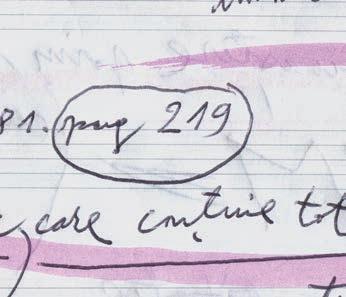 81. pag 219
care conține tot